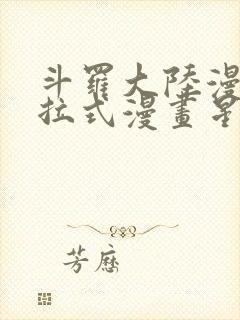 斗羅大陸漫
拉式漫畫星
芳歷